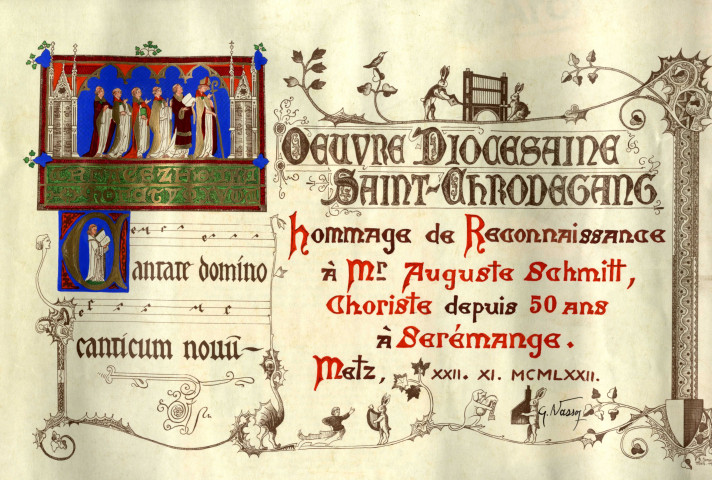 Oeuvre Diocesaine
Saint-Chrodegang
Cantate domino
canticum novū
hommage de Reconnaissance
à Mr Auguste Schmitt,
Choriste depuis 50 ans
à Serémange.
Metz, XXII. XI. MCMLXXII.